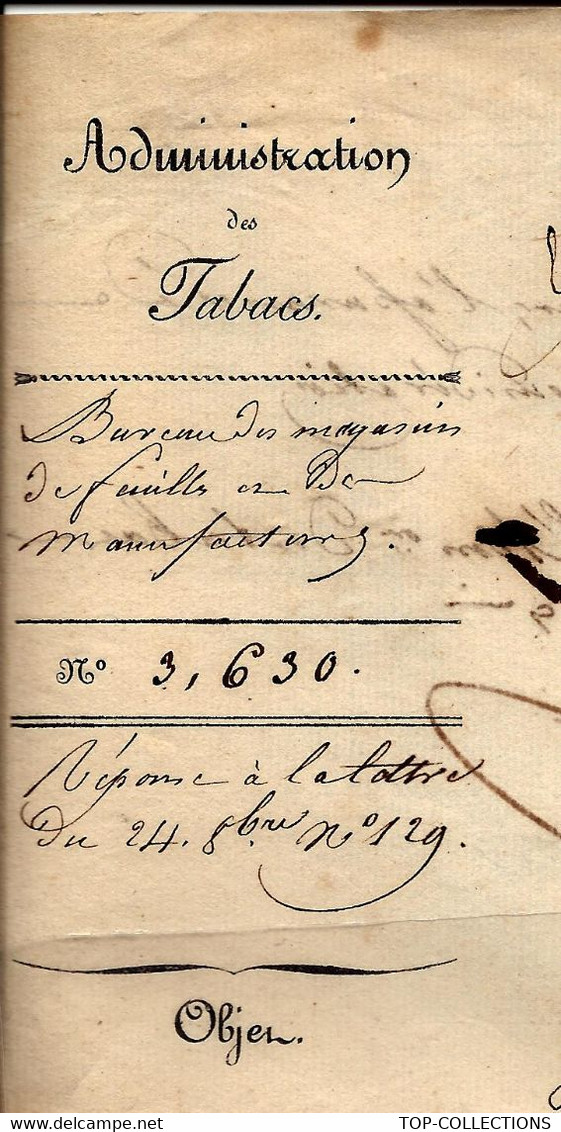 Administration
des
Tabacs.
Bureau des magasins
de feuilles et De
manufactures.
N° 3,630.
Réponse à la lettre
Du 24. 8bre N° 129.
Objet.
TOP-COLLECTIONS